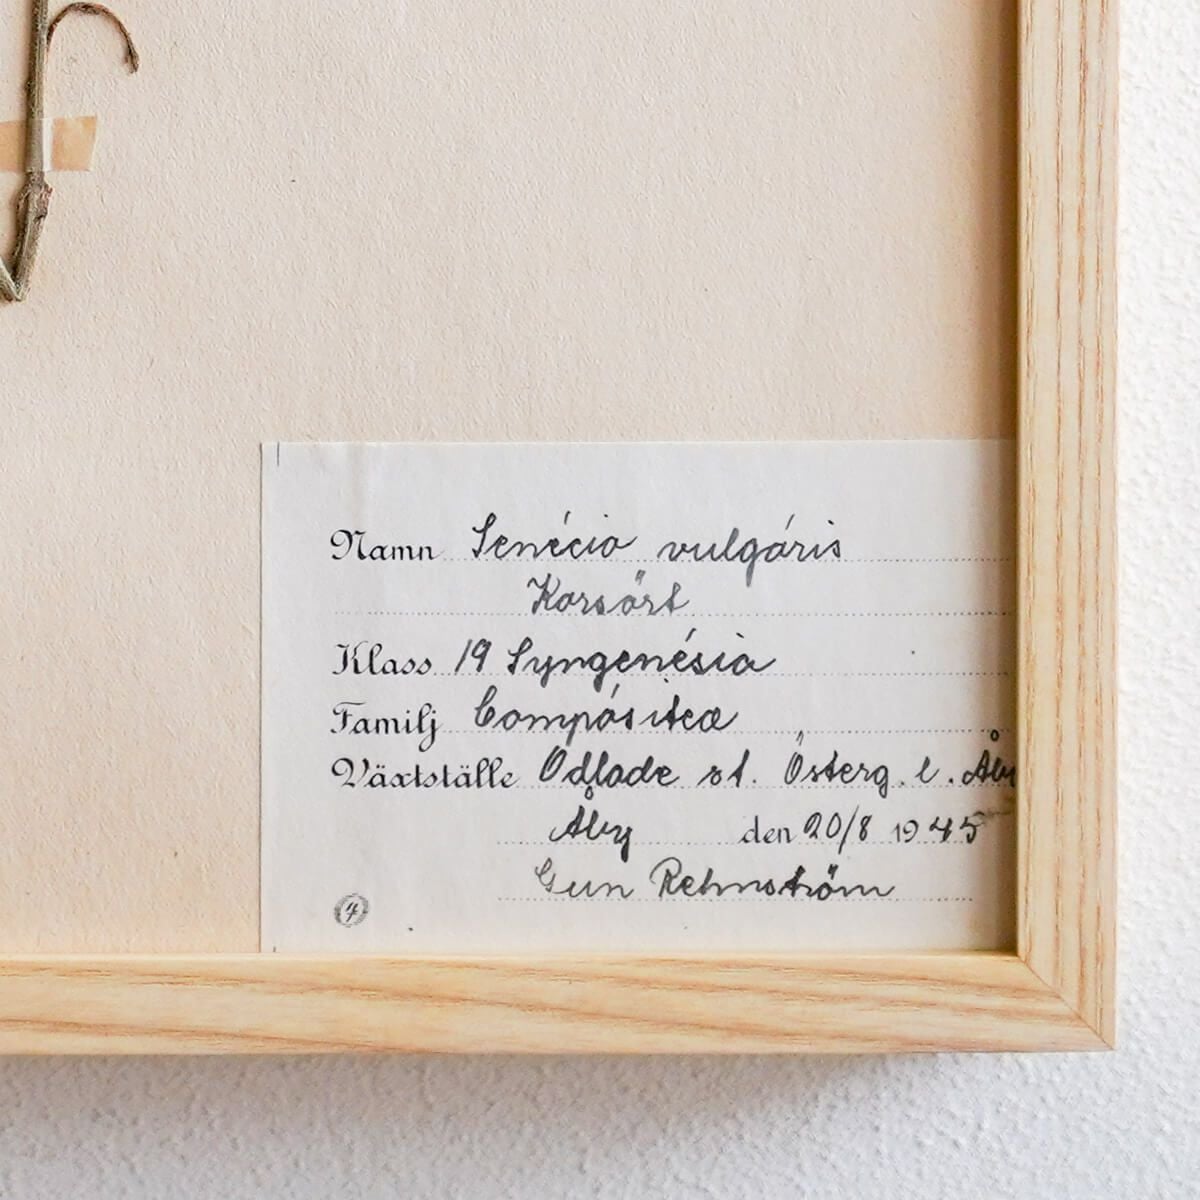 Namn Senécio vulgáris
Korsört
Klass 19 Syngenésia
Familj Compósitae
Växtställe Odlade st. Österg. l. Åby
Åby den 20/8 1945
Gun Rehnström
4